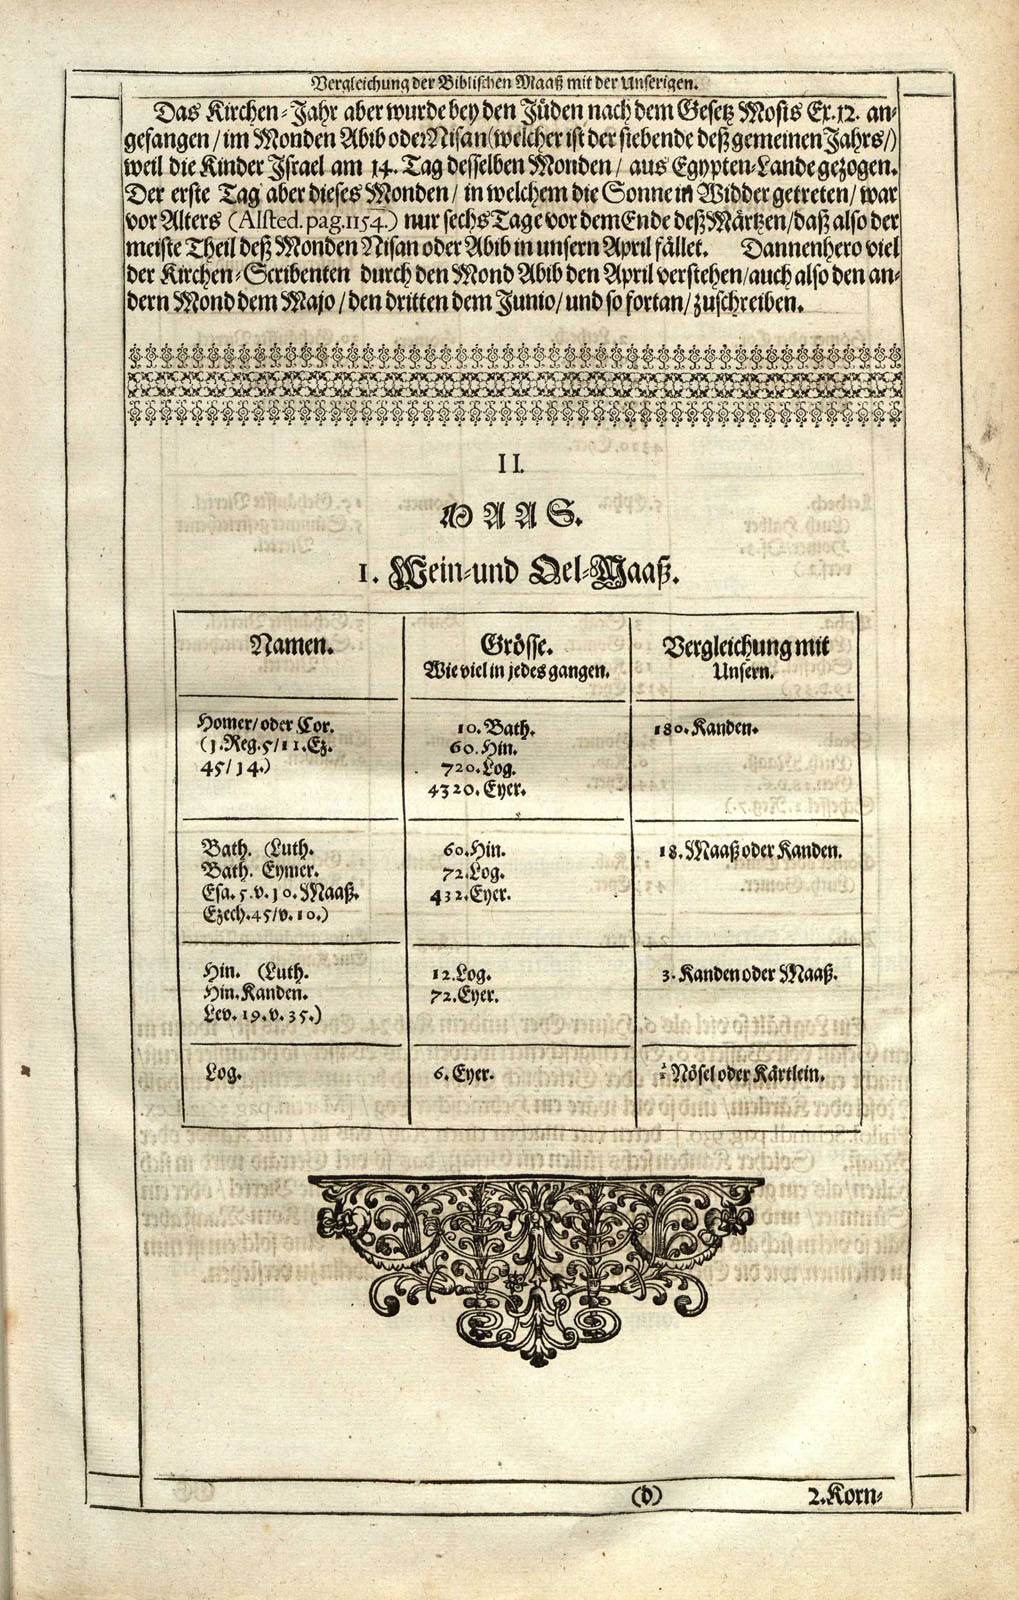 Vergleichung der Biblischen Maaß mit der Unserigen.
Das Kirchen-Jahr aber wurde bey den Jüden nach dem Gesetz Mosis Ex. 12. an-
gefangen / im Monden Abib oder Nisan (welcher ist der siebende deß gemeinen Jahrs /)
weil die Kinder Israel am 14. Tag desselben Monden / aus Egypten-Lande gezogen.
Der erste Tag aber dieses Monden / in welchem die Sonne in Widder getreten / war
vor Alters (Alsted. pag. 1154.) nur sechs Tage vor dem Ende deß Märtzen / daß also der
meiste Theil deß Monden Nisan oder Abib in unsern April fället. Dannenhero viel
der Kirchen-Scribenten durch den Mond Abib den April verstehen / auch also den an-
dern Mond dem Majo / den dritten dem Junio / und so fortan / zuschreiben.
II.
MAAS.
1. Wein-und Oel-Maaß.
Namen.
Grösse.
Wie viel in jedes gangen.
Vergleichung mit
Unsern.
Homer / oder Cor.
(1. Reg. 5 / 11. Ez.
45 / 14.)
10. Bath.
60. Hin.
720. Log.
4320. Eyer.
180. Kanden.
Bath. (Luth.
Bath. Eymer.
Esa. 5. v. 10. Maaß.
Ezech. 45 / v. 10.)
60. Hin.
72. Log.
432. Eyer.
18. Maaß oder Kanden.
Hin. (Luth.
Hin. Kanden.
Lev. 19. v. 35.)
12. Log.
72. Eyer.
3. Kanden oder Maaß.
Log.
6. Eyer.
½ Nösel oder Kärtlein.
(d)
2. Korn-